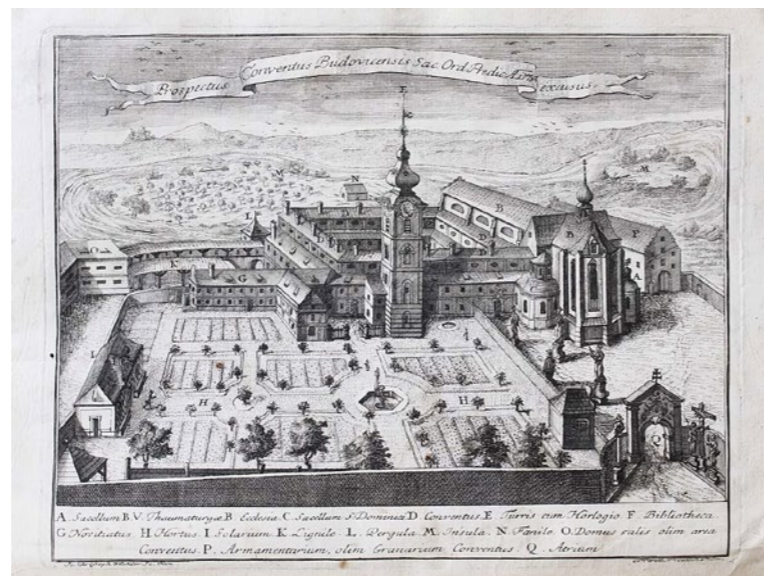 Prospectus Conventus Budovicensis Sac. Ord. Prædic. excusus.
A. Sacellum B.V. Thaumaturgæ B Ecclesia. C. Sacellum S. Dominici D Conventus. E. Turris cum Horlogio. F Bibliotheca.
G Novitiatus H Hortus. I Solarium. K Lignile. L. Pergula. M. Insula. N. Fænile. O. Domus salis olim area
Conventus. P. Armamentarium, olim Granarium Conventus. Q. Atrium